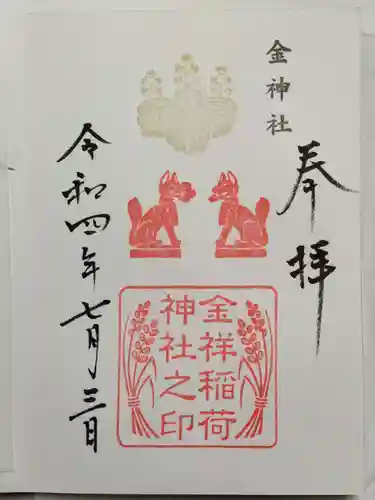 金神社
奉拝
金祥稲荷
神社之印
令和四年七月三日